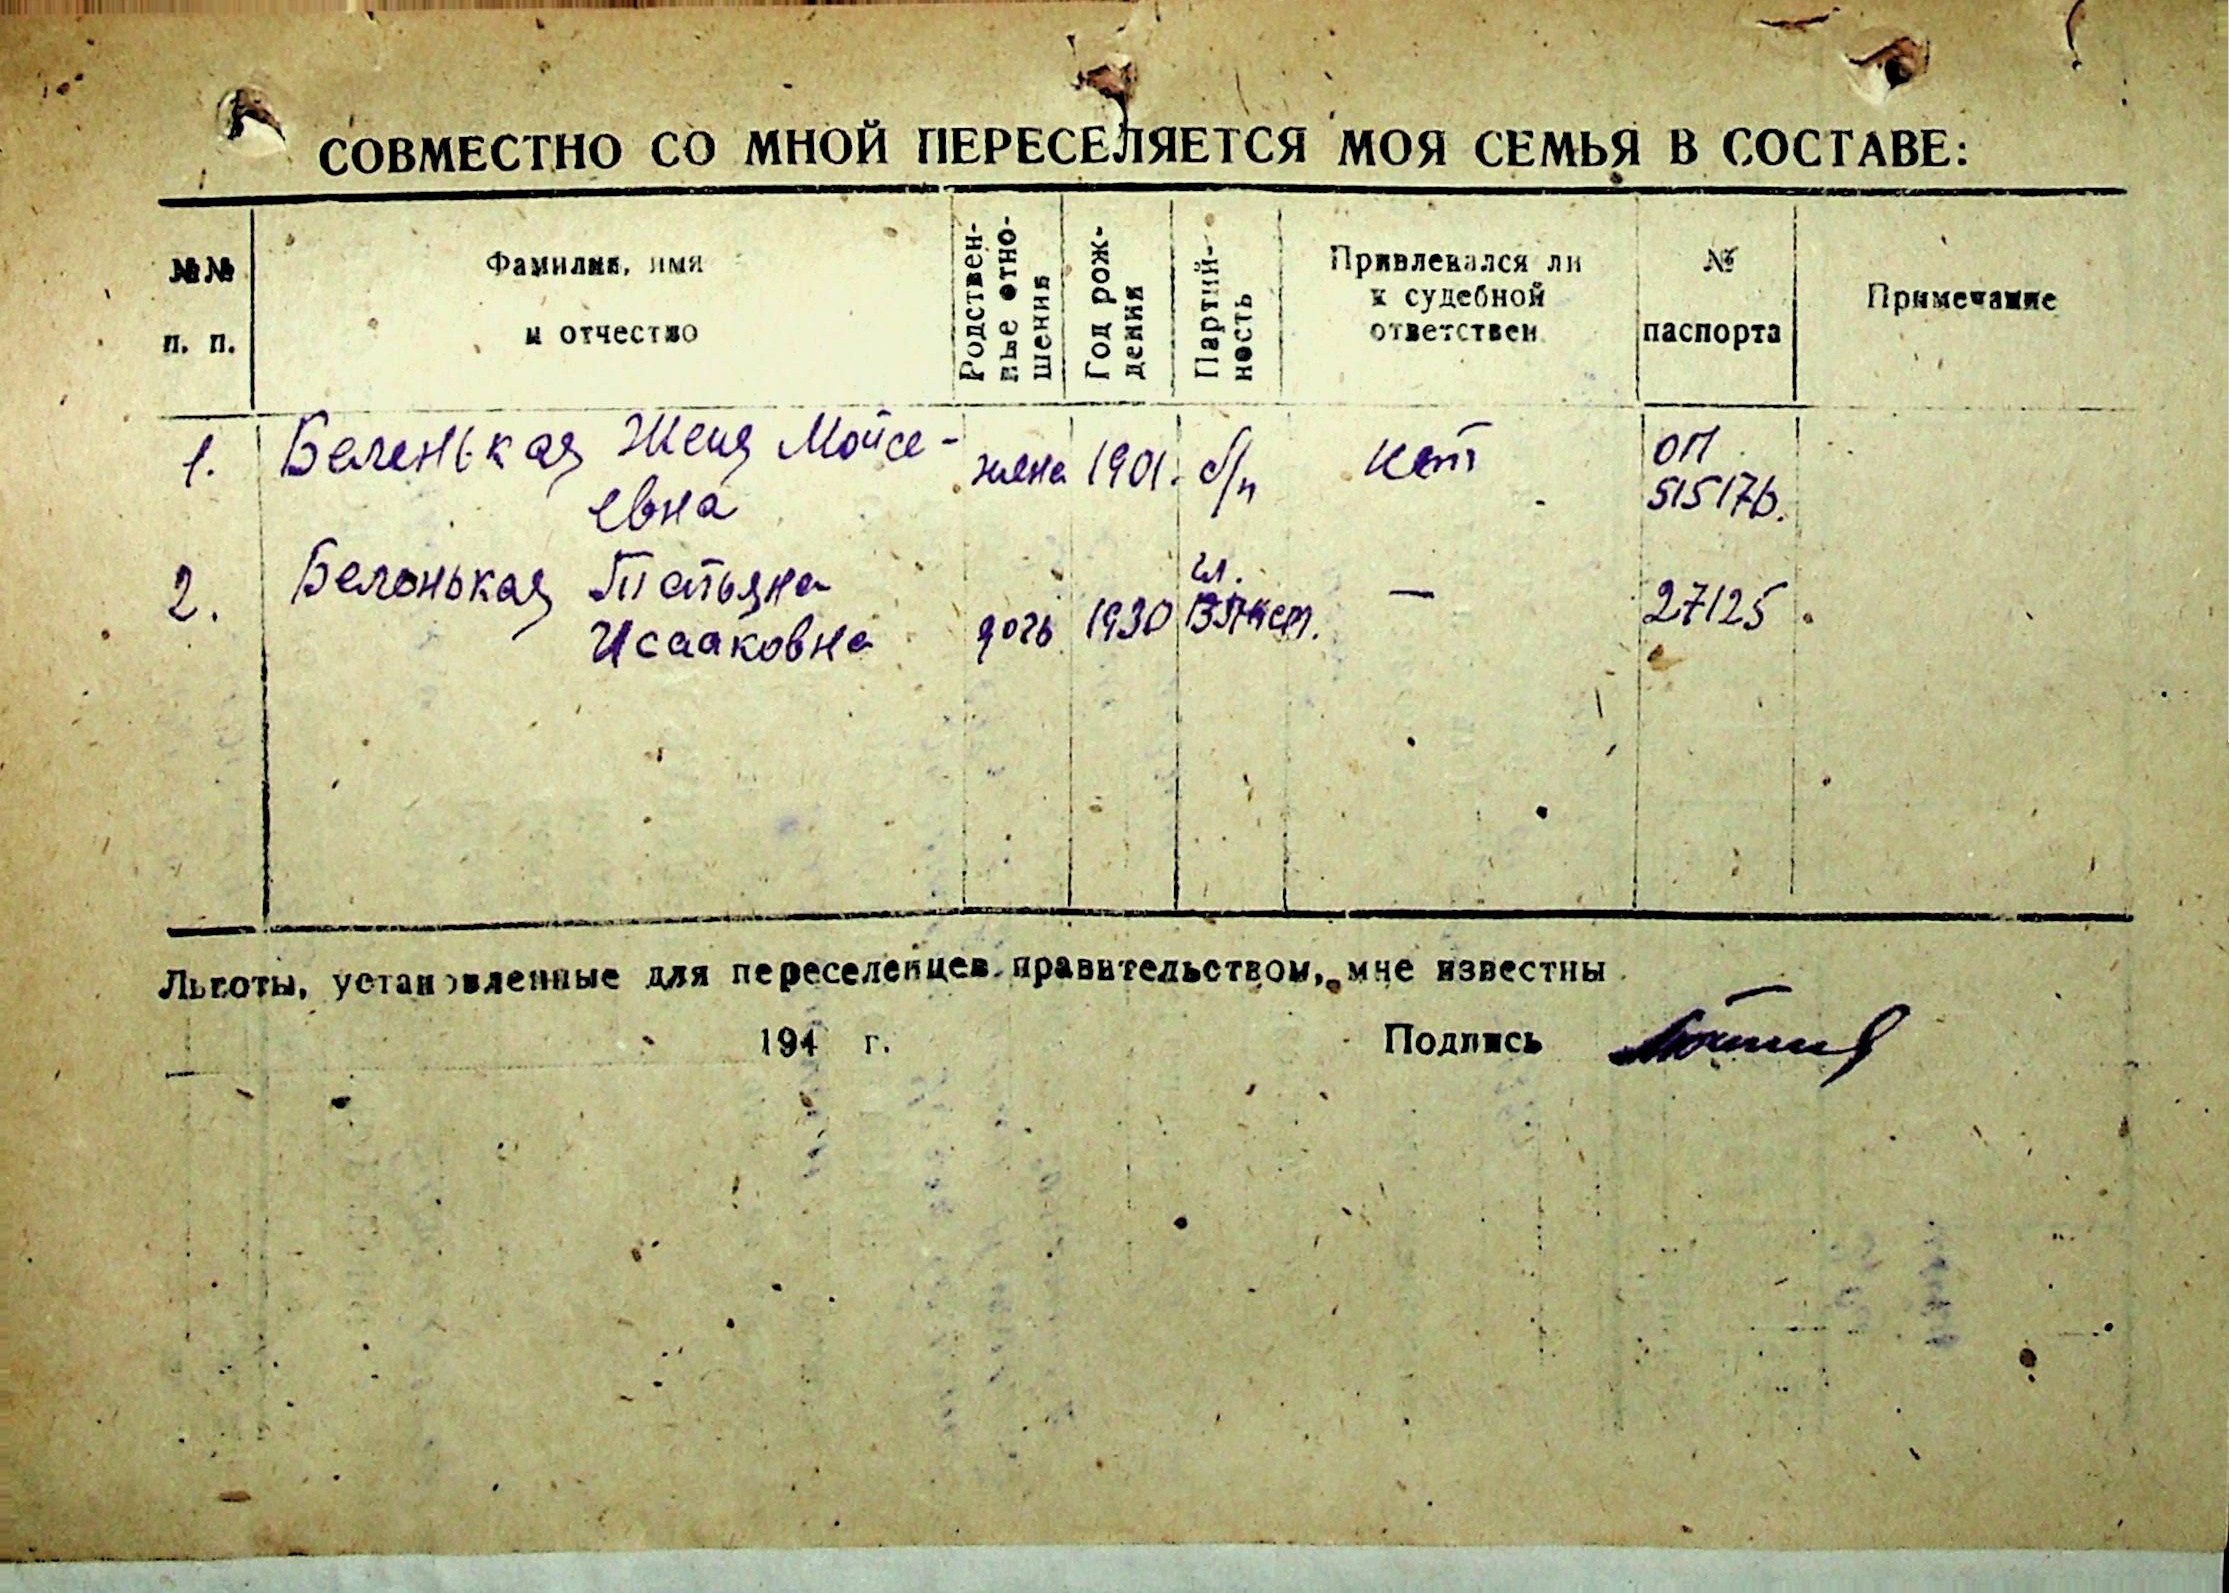 СОВМЕСТНО СО МНОЙ ПЕРЕСЕЛЯЕТСЯ МОЯ СЕМЬЯ В СОСТАВЕ:
№№ п. п.
Фамилия, имя и отчество
Родствен-
ные отно-
шения
Год рож-
дения
Партий-
ность
Привлекался ли
к судебной
ответствен
№
паспорта
Примечание
1. Беленькая Женя Мойсе- жена 1901. б/п нет ОП
евна 515176.
2. Беленькая Татьяна чл.
Исааковна дочь 1930 — 27125
Льготы, установленные для переселенцев правительством, мне известны
194 г. Подпись